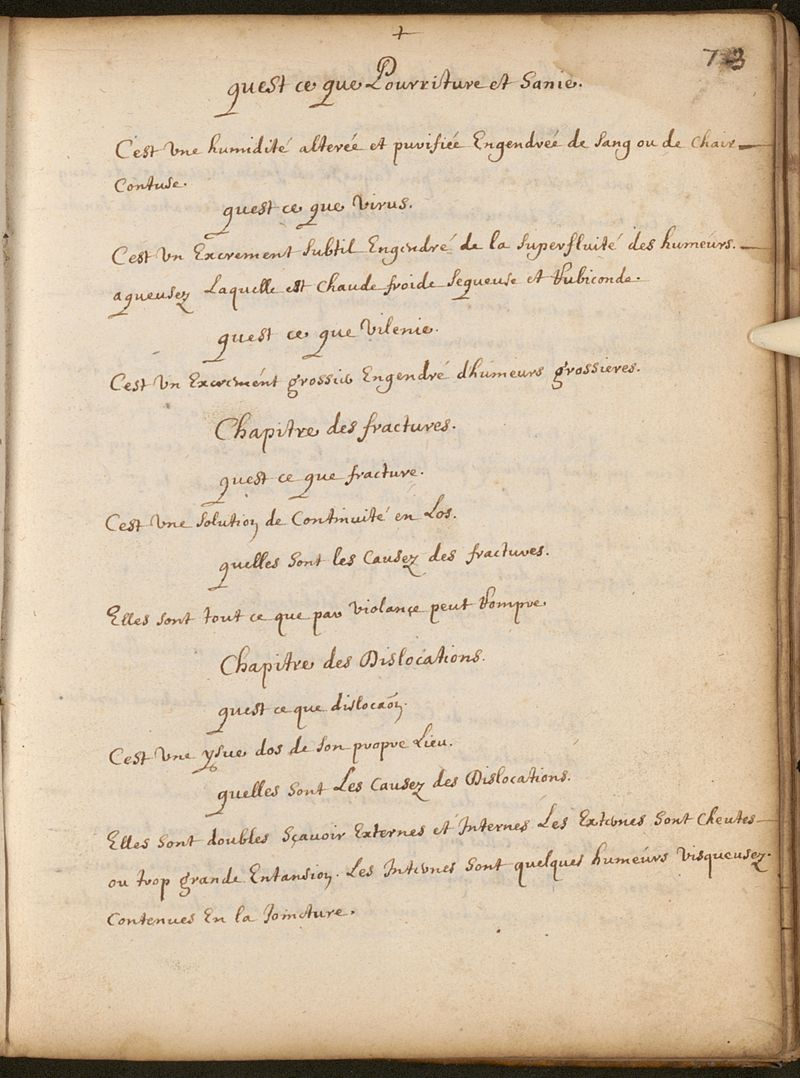 +
73
quest ce que Pourriture et Sanie.
Cest Une humidité alterée et purifiée Engendrée de Sang ou de Chair
Contuse.
quest ce que Virus.
Cest Un Excrement Subtil Engendré de la Superfluité des humeurs.
aqueusez Laquelle est Chaude froide Sequeuse et Rubiconde.
quest ce que Vilenie.
Cest Un Excremént grossie Engendré dhumeurs grossieres.
Chapitre des fractures.
quest ce que fracture.
Cest Une Solution de Continuité en Los.
quelles Sont les Causez des fractures.
Elles sont tout ce que par Violançe peut Rompre
Chapitre des Dislocations.
quest ce que dislocaōn.
Cest Une ysue dos de Son propre Lieu.
quelles Sont Les Causez des Dislocations.
Elles Sont doubles Sçavoir Externes et Internes Les Externes Sont Cheutes
ou trop grande Entansion. Les Internes Sont quelques humeurs Visqueusez.
Contenues En la Joincture.